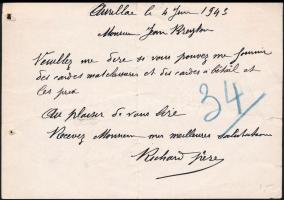 Aurillac le 4 Juin 1943
Monsieur Jean
Veuillez me dire si vous pouvez me fournir
des cardes matelassures et des cardes à bétail et
les prix
Au plaisir de vous lire
34
Recevez Monsieur mes meilleures salutations
Richard frère